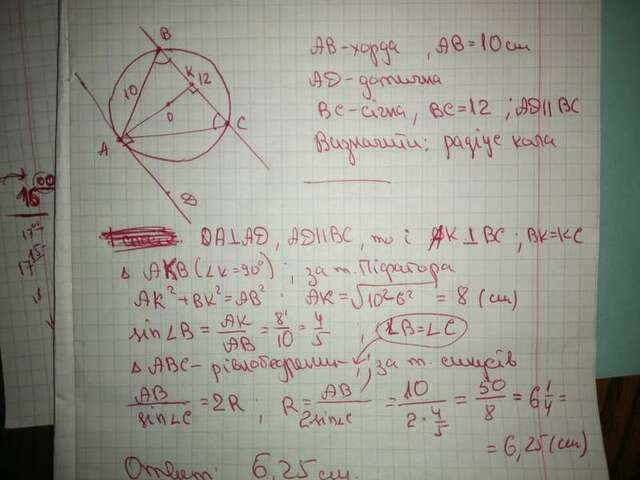 B
K 12
10
O
C
A
D
AB-хорда , AB=10 см
AD-дотична
BC-січна, BC=12 ; AD||BC
Визначити: радіус кола
OA⊥AD, AD||BC, то і AK⊥BC ; BK=KC
Δ AKB (∠K=90°) ; за т. Піфагора
AK²+BK²=AB² ; AK=√10²-6² = 8 (см)
sin∠B = AK/AB = 8/10 = 4/5 ; ∠B=∠C
Δ ABC- рівнобедрений ; за т. синусів
AB/sin∠C = 2R ; R = AB/2sin∠C = 10/2·4/5 = 50/8 = 6 1/4 =
= 6,25 (см)
Ответ: 6,25 см.